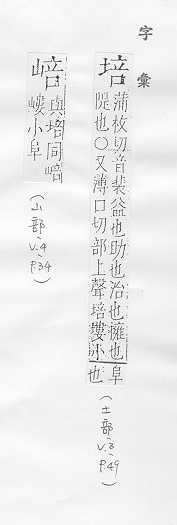 字彙
培 蒲枚切音裴益也助也治也擁也阜
陡也〇又薄口切部上聲培塿小阜也
(土部、V.3、P.49)
㟝 與培同㟝
嶁小阜
(山部、V.4、P.34)